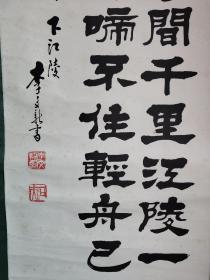 間千里江陵一
啼不住輕舟已
下江陵
李
書